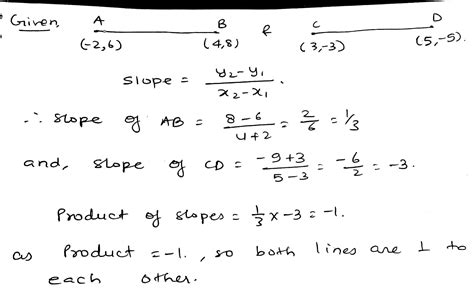 Given, A B & C D
(-2,6) (4,8) (3,-3) (5,-5).
Slope = y₂-y₁ / x₂-x₁ .
∴ slope of AB = 8-6 / 4+2 = 2/6 = 1/3
and, slope of CD = -9+3 / 5-3 = -6/2 = -3.
Product of slopes = 1/3 x -3 = -1.
as Product = -1. , so both lines are ⊥ to
each other.